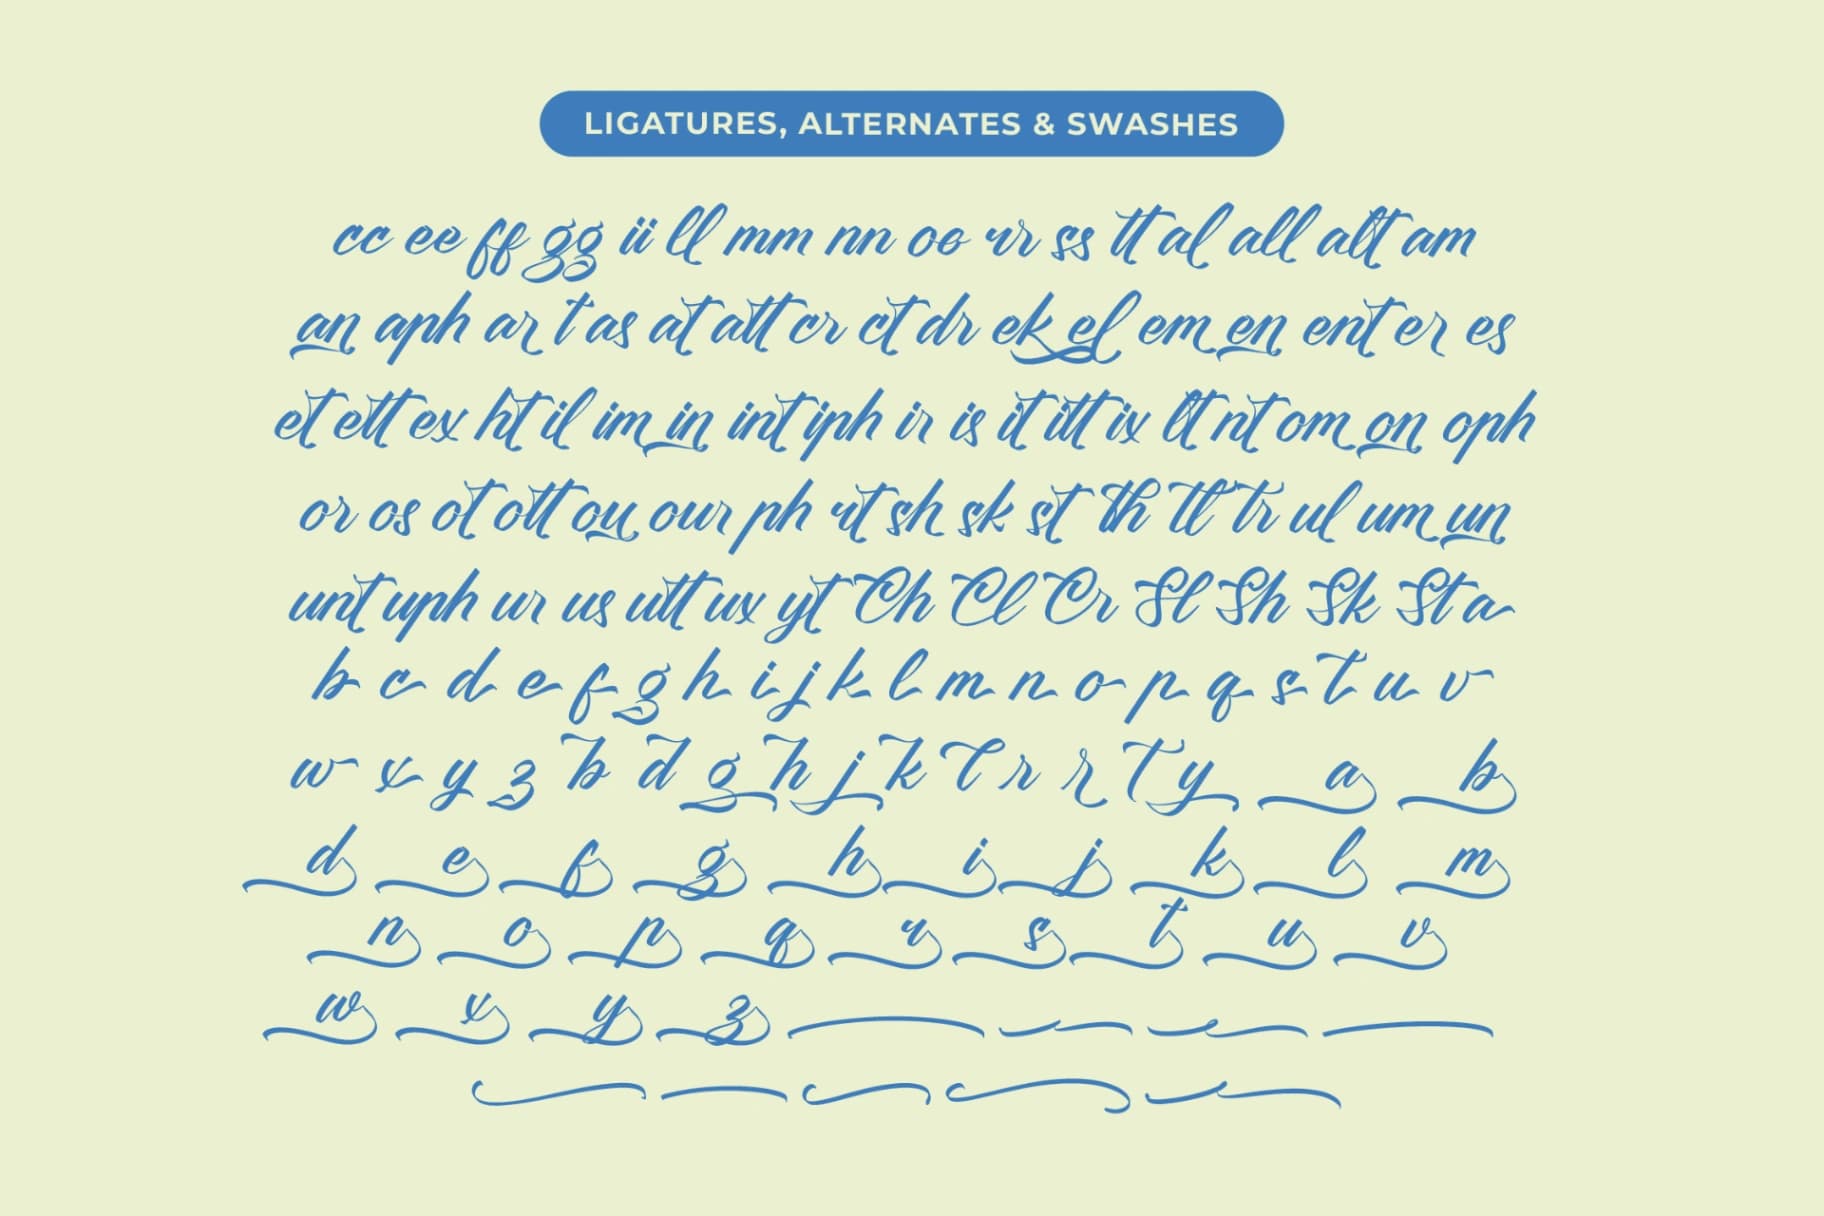 LIGATURES, ALTERNATES & SWASHES
cc ee ff gg ii ll mm nn oo rr ss tt al all alt am
an aph ar t as at att cr ct dr ek el em en ent er es
et ett ex ht il im in int iph ir is it itt ix lt nt om on oph
or os ot ott ou our ph rt sh sk st th tl tr ul um un
unt uph ur us utt ux yt Ch Cl Cr Sl Sh Sk St a
b c d e f g h i j k l m n o p q s t u v
w x y z b d g h j k l r r t y a b
d e f g h i j k l m
n o p q r s t u v
w x y z